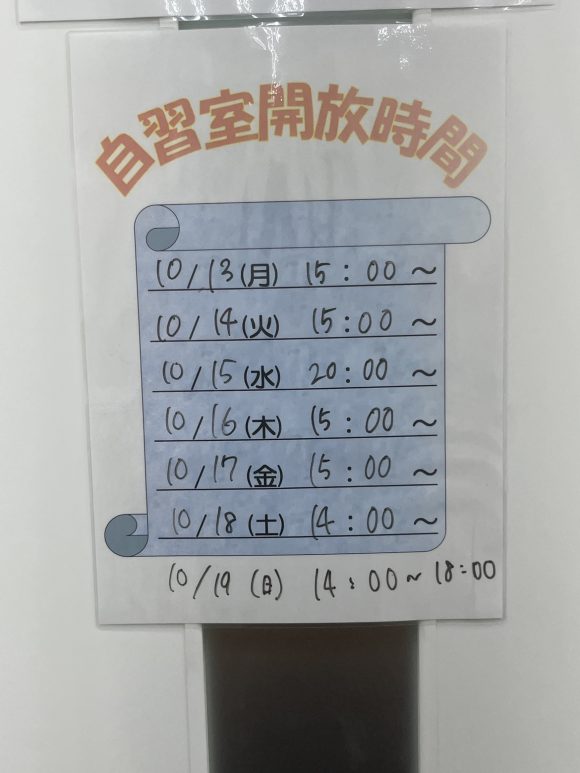 自習室開放時間
10/13(月) 15:00~
10/14(火) 15:00~
10/15(水) 20:00~
10/16(木) 15:00~
10/17(金) 15:00~
10/18(土) 14:00~
10/19(日) 14:00~18:00